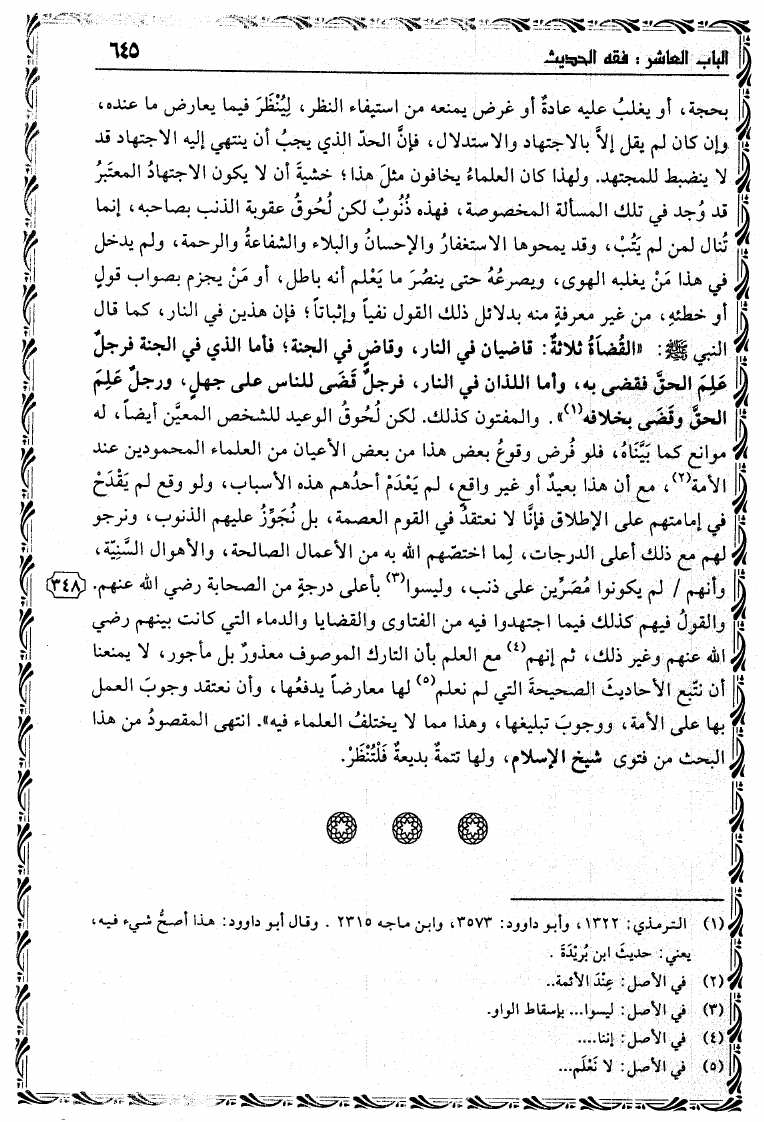 الباب العاشر : فقه الحديث
٦٤٥
بحجة، أو يغلبُ عليه عادةٌ أو غرض يمنعه من استيفاء النظر، لِيُنْظَرَ فيما يعارض ما عنده،
وإن كان لم يقل إلاَّ بالاجتهاد والاستدلال، فإنَّ الحدّ الذي يجبُ أن ينتهي إليه الاجتهاد قد
لا ينضبط للمجتهد. ولهذا كان العلماءُ يخافون مثلَ هذا؛ خشيةَ أن لا يكون الاجتهادُ المعتَبرُ
قد وُجد في تلك المسألة المخصوصة، فهذه ذُنُوبٌ لكن لُحوقُ عقوبة الذنب بصاحبه، إنما
تُنال لمن لم يَتُبْ، وقد يمحوها الاستغفارُ والإحسانُ والبلاء والشفاعةُ والرحمة، ولم يدخل
في هذا مَنْ يغلبه الهوى، ويصرعُهُ حتى ينصُرَ ما يَعْلم أنه باطل، أو مَنْ يجزم بصواب قولٍ
أو خطئهِ، من غير معرفةٍ منه بدلائل ذلك القول نفياً وإثباتاً؛ فإن هذين في النار، كما قال
النبي ﷺ: «القُضَاةُ ثلاثةٌ: قاضيان في النار، وقاضٍ في الجنة؛ فأما الذي في الجنة فرجلٌ
عَلِمَ الحقَّ فقضى به، وأما اللذان في النار، فرجلٌ قَضَى للناس على جهلٍ، ورجلٌ عَلِمَ
الحقَّ وقَضَى بخلافه(١)». والمفتون كذلك. لكن لُحوقُ الوعيد للشخص المعيَّن أيضاً، له
موانع كما بَيَّنَاهُ، فلو فُرض وقوعُ بعض هذا من بعض الأعيان من العلماء المحمودين عند
الأمة(٢)، مع أن هذا بعيدٌ أو غير واقع، لم يَعْدَمْ أحدُهم هذه الأسباب، ولو وقع لم يَقْدَحْ
في إمامتهم على الإطلاق فإنَّا لا نعتقدُ في القوم العصمة، بل نُجَوِّزُ عليهم الذنوب، ونرجو
لهم مع ذلك أعلى الدرجات، لِما اختصّهم الله به من الأعمال الصالحة، والأهوال السَّنِيّة،
وأنهم / لم يكونوا مُصَرِّين على ذنب، وليسوا(٣) بأعلى درجةٍ من الصحابة رضي الله عنهم. ٣٤٨
والقولُ فيهم كذلك فيما اجتهدوا فيه من الفتاوى والقضايا والدماء التي كانت بينهم رضي
الله عنهم وغير ذلك، ثم إنهم(٤) مع العلم بأن التارك الموصوف معذورٌ بل مأجور، لا يمنعنا
أن نتّبع الأحاديثَ الصحيحةَ التي لم نعلم(٥) لها معارضاً يدفعُها، وأن نعتقد وجوبَ العمل
بها على الأمة، ووجوبَ تبليغها، وهذا مما لا يختلفُ العلماء فيه». انتهى المقصودُ من هذا
البحث من فتوى شيخ الإسلام، ولها تتمةٌ بديعةٌ فَلْتُنْظَرْ.
(١) الترمذي: ١٣٢٢، وأبو داوود: ٣٥٧٣، وابن ماجه ٢٣١٥. وقال أبو داوود: هذا أصحُّ شيء فيه،
يعني: حديثَ ابن بُرَيْدَةَ.
(٢) في الأصل: عِنْدَ الأئمة..
(٣) في الأصل: ليسوا... بإسقاط الواو.
(٤) في الأصل: إننا....
(٥) في الأصل: لا نَعْلَم...